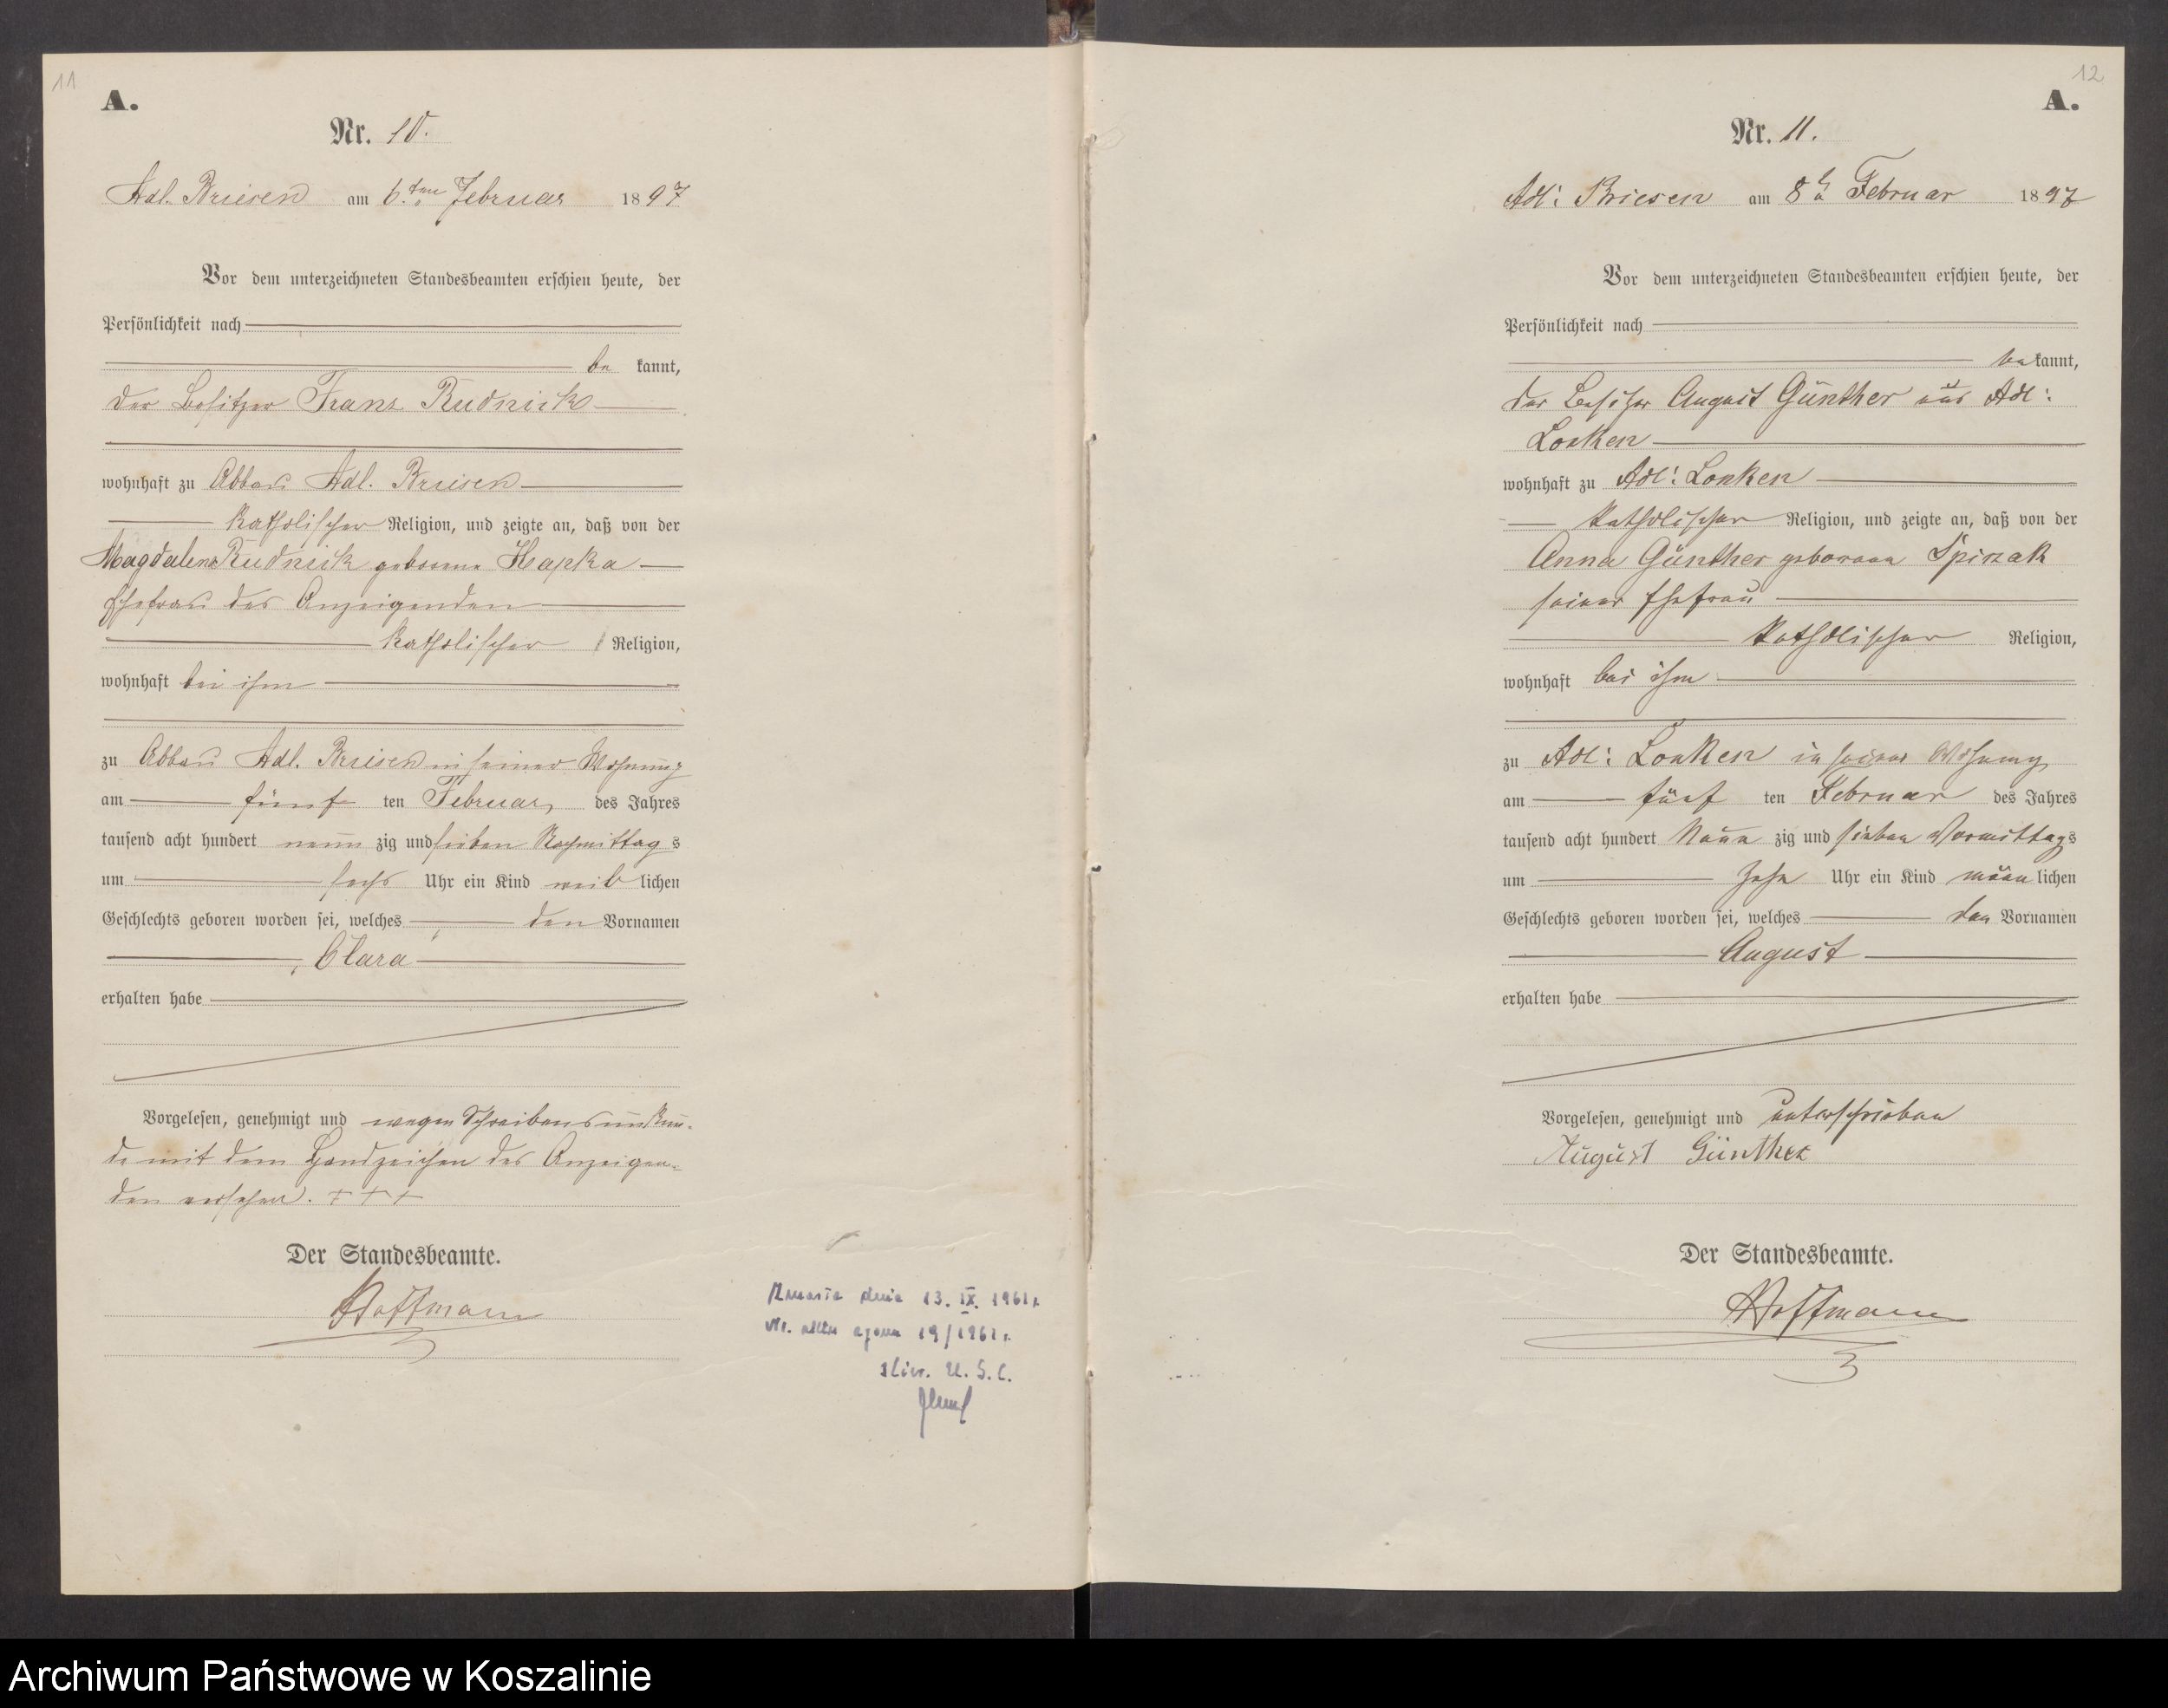 11
A.
Nr. 10.
Adl. Briesen am 6.ten Februar 1897
Vor dem unterzeichneten Standesbeamten erschien heute, der
Persönlichkeit nach
be kannt,
der Besitzer Franz Rudnick
wohnhaft zu Abbau Adl. Briesen
katholischer Religion, und zeigte an, daß von der
Magdalena Rudnick geborene Hapka
Ehefrau des Anzeigenden
katholischer Religion,
wohnhaft bei ihm
zu Abbau Adl. Briesen in seiner Wohnung
am fünf ten Februar, des Jahres
tausend acht hundert neun zig und sieben Nachmittag s
um sechs Uhr ein Kind weib lichen
Geschlechts geboren worden sei, welches den Vornamen
Clara
erhalten habe
Vorgelesen, genehmigt und wegen Schreibensunkun-
de mit dem Handzeichen des Anzeigen-
den versehen. + + +
Der Standesbeamte.
Hoffmann
dnia 13. IX. 1961 r.
Nr. aktu zgonu 19/1961 r.
U. S. C.
12
A.
Nr. 11.
Adl: Briesen am 8t Februar 1897
Vor dem unterzeichneten Standesbeamten erschien heute, der
Persönlichkeit nach
be kannt,
der Besitzer August Günther aus Adl:
Lonken
wohnhaft zu Adl: Lonken
katholischer Religion, und zeigte an, daß von der
Anna Günther geborenen Spiczak
seiner Ehefrau
katholischer Religion,
wohnhaft bei ihm
zu Adl: Lonken in seiner Wohnung
am fünf ten Februar des Jahres
tausend acht hundert Neun zig und sieben Vormittags
um Zehn Uhr ein Kind männ lichen
Geschlechts geboren worden sei, welches den Vornamen
August
erhalten habe
Vorgelesen, genehmigt und unterschrieben
August Günther
Der Standesbeamte.
Hoffmann
Archiwum Państwowe w Koszalinie